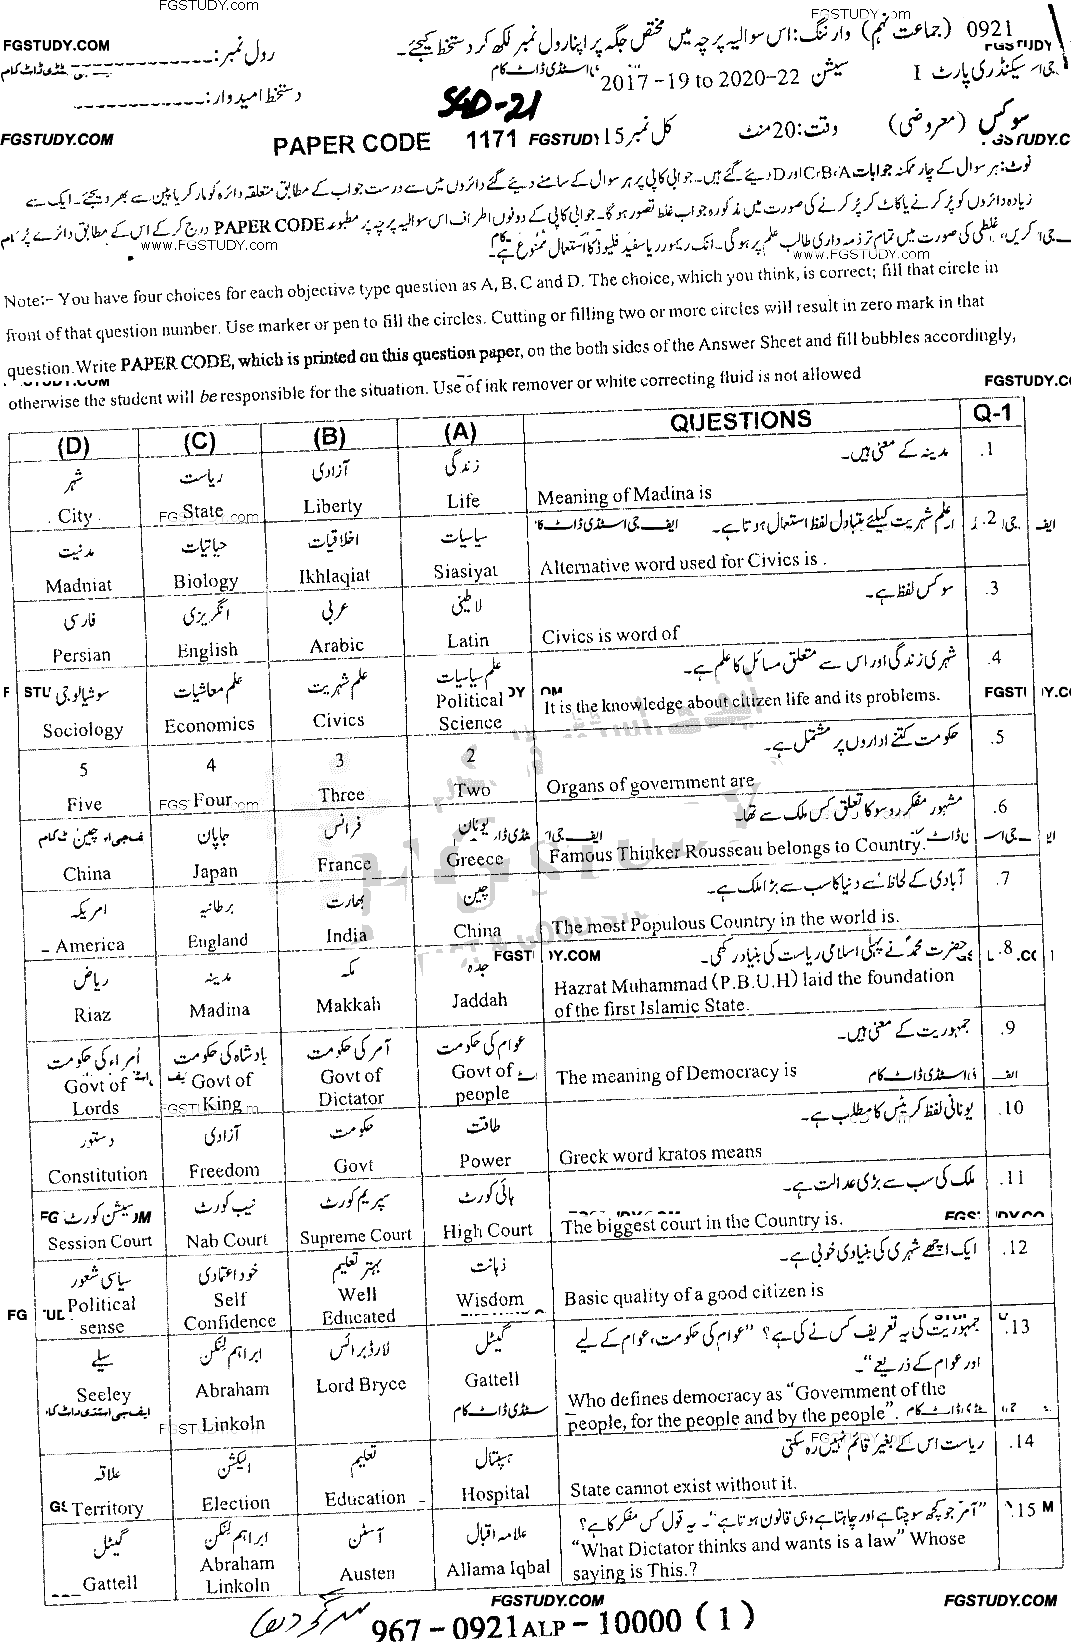 FGSTUDY.COM
FGSTUDY.com
0921 (جماعت نہم) وارننگ: اس سوالیہ پرچہ میں مختص جگہ پر اپنا رول نمبر لکھ کر دستخط کیجئے۔
FGSTUDY.COM
رول نمبر: ------------
سیکنڈری پارٹ I سیشن 2017 -19 to 2020-22
دستخط امیدوار: ------------
SGD-21
سوکس (معروضی) وقت: 20 منٹ کل نمبر 15
PAPER CODE 1171
FGSTUDY.COM
نوٹ: ہر سوال کے چار ممکنہ جوابات C، B، A اور D دیئے گئے ہیں۔ جوابی کاپی پر ہر سوال کے سامنے دیئے گئے دائروں میں سے درست جواب کے مطابق متعلقہ دائرہ کو مارکر یا پین سے بھر دیجئے۔ ایک سے
زیادہ دائروں کو پُر کرنے یا کاٹ کر پُر کرنے کی صورت میں مذکورہ جواب غلط تصور ہو گا۔ جوابی کاپی کے دونوں اطراف اس سوالیہ پرچہ پر مطبوعہ PAPER CODE درج کر کے اس کے مطابق دائرے پُر
کریں، غلطی کی صورت میں تمام تر ذمہ داری طالب علم پر ہو گی۔ انک ریموور یا سفید فلیوڈ کا استعمال ممنوع ہے۔
www.FGSTUDY.com
www.FGSTUDY.com
Note:- You have four choices for each objective type question as A, B, C and D. The choice, which you think, is correct; fill that circle in
front of that question number. Use marker or pen to fill the circles. Cutting or filling two or more circles will result in zero mark in that
question. Write PAPER CODE, which is printed on this question paper, on the both sides of the Answer Sheet and fill bubbles accordingly,
otherwise the student will be responsible for the situation. Use of ink remover or white correcting fluid is not allowed
FGSTUDY.CO
(D) (C) (B) (A) QUESTIONS Q-1
شہر ریاست آزادی زندگی مدینہ کے معنی ہیں۔ .1
City State Liberty Life Meaning of Madina is
مدنیت حیاتیات اخلاقیات سیاسیات علم شہریت کیلئے متبادل لفظ استعمال ہوتا ہے۔ .2
Madniat Biology Ikhlaqiat Siasiyat Alternative word used for Civics is .
فارسی انگریزی عربی لاطینی سوکس لفظ ہے۔ .3
Persian English Arabic Latin Civics is word of
سوشیالوجی علم معاشیات علم شہریت علم سیاسیات شہری زندگی اور اس سے متعلق مسائل کا علم ہے۔ .4
Sociology Economics Civics Political Science It is the knowledge about citizen life and its problems.
5 4 3 2 حکومت کتنے اداروں پر مشتمل ہے۔ .5
Five Four Three Two Organs of government are
چین جاپان فرانس یونان مشہور مفکر روسو کا تعلق کس ملک سے تھا۔ .6
China Japan France Greece Famous Thinker Rousseau belongs to Country.
امریکہ برطانیہ بھارت چین آبادی کے لحاظ سے دنیا کا سب سے بڑا ملک ہے۔ .7
America England India China The most Populous Country in the world is.
ریاض مدینہ مکہ جدہ حضرت محمدؐ نے پہلی اسلامی ریاست کی بنیاد رکھی۔ .8
Riaz Madina Makkah Jaddah Hazrat Muhammad (P.B.U.H) laid the foundation
of the first Islamic State.
اُمراء کی حکومت بادشاہ کی حکومت آمر کی حکومت عوام کی حکومت جمہوریت کے معنی ہیں۔ .9
Govt of Lords Govt of King Govt of Dictator Govt of people The meaning of Democracy is
دستور آزادی حکومت طاقت یونانی لفظ کریٹس کا مطلب ہے۔ .10
Constitution Freedom Govt Power Greck word kratos means
سیشن کورٹ نیب کورٹ سپریم کورٹ ہائی کورٹ ملک کی سب سے بڑی عدالت ہے۔ .11
Session Court Nab Court Supreme Court High Court The biggest court in the Country is.
سیاسی شعور خود اعتمادی بہتر تعلیم ذہانت ایک اچھے شہری کی بنیادی خوبی ہے۔ .12
Political sense Self Confidence Well Educated Wisdom Basic quality of a good citizen is
سیلے ابراہم لنکن لارڈ برائس گیٹل جمہوریت کی یہ تعریف کس نے کی ہے؟ "عوام کی حکومت، عوام کے لیے .13
اور عوام کے ذریعے"۔
Seeley Abraham Linkoln Lord Bryce Gattell Who defines democracy as "Government of the
people, for the people and by the people".
علاقہ الیکشن تعلیم ہسپتال ریاست اس کے بغیر قائم نہیں رہ سکتی .14
Territory Election Education Hospital State cannot exist without it.
گیٹل ابراہم لنکن آسٹن علامہ اقبال "آمر جو کچھ سوچتا ہے اور چاہتا ہے وہی قانون ہوتا ہے"۔ یہ قول کس مفکر کا ہے؟ .15
Gattell Abraham Linkoln Austen Allama Iqbal "What Dictator thinks and wants is a law" Whose
saying is This.?
FGSTUDY.COM
FGSTUDY.COM
967 - 0921 ALP - 10000 (1)